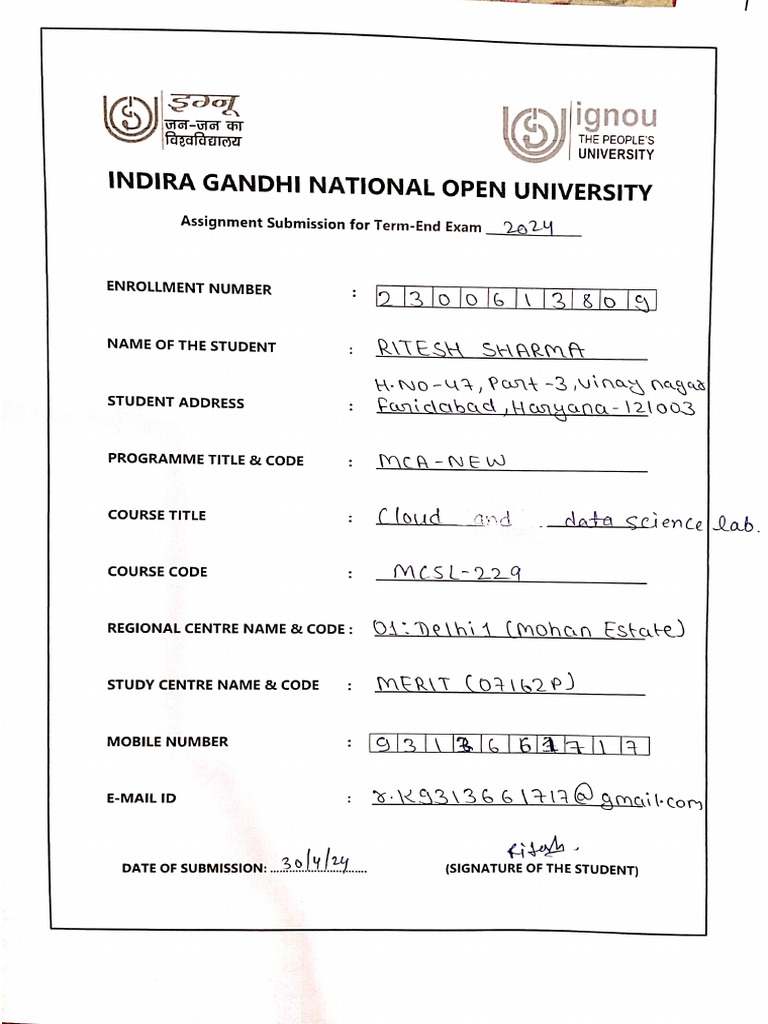 इग्नू
जन-जन का
विश्वविद्यालय
ignou
THE PEOPLE'S
UNIVERSITY
INDIRA GANDHI NATIONAL OPEN UNIVERSITY
Assignment Submission for Term-End Exam 2024
ENROLLMENT NUMBER : 2300613809
NAME OF THE STUDENT : RITESH SHARMA
H.NO-47, Part-3, Vinay nagar
STUDENT ADDRESS : Faridabad, Haryana-121003
PROGRAMME TITLE & CODE : MCA-NEW
COURSE TITLE : Cloud and data science lab.
COURSE CODE : MCSL-229
REGIONAL CENTRE NAME & CODE : 01: Delhi 1 (Mohan Estate)
STUDY CENTRE NAME & CODE : MERIT (07162P)
MOBILE NUMBER : 9313661717
E-MAIL ID : r.k9313661717@gmail.com
Ritesh.
DATE OF SUBMISSION: 30/4/24 (SIGNATURE OF THE STUDENT)